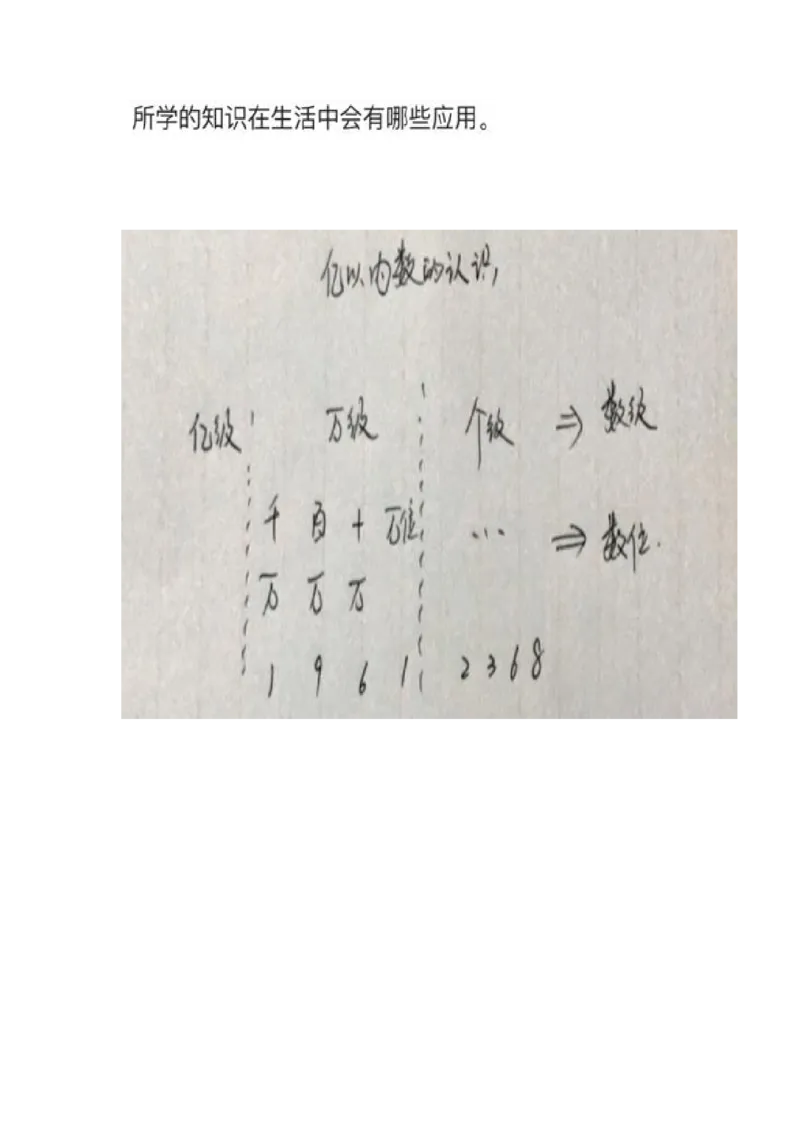 所学的知识在生活中会有哪些应用。
亿以内数的认识
亿级 万级 个级 ⇒ 数级
千 百 十 万位 ... ⇒ 数位.
万 万 万
1 9 6 1 2 3 6 8